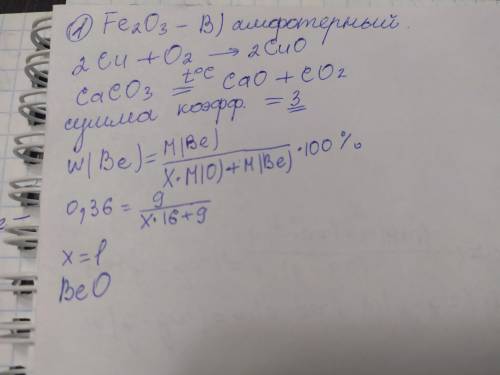 ① Fe₂O₃ – В) амфотерный.
2Cu + O₂ → 2CuO
CaCO₃ t°C= CaO + CO₂
сумма коэфф. = 3
W(Be) = M(Be) / X·M(O) + M(Be) · 100%
0,36 = 9 / X·16+9
x = 1
BeO